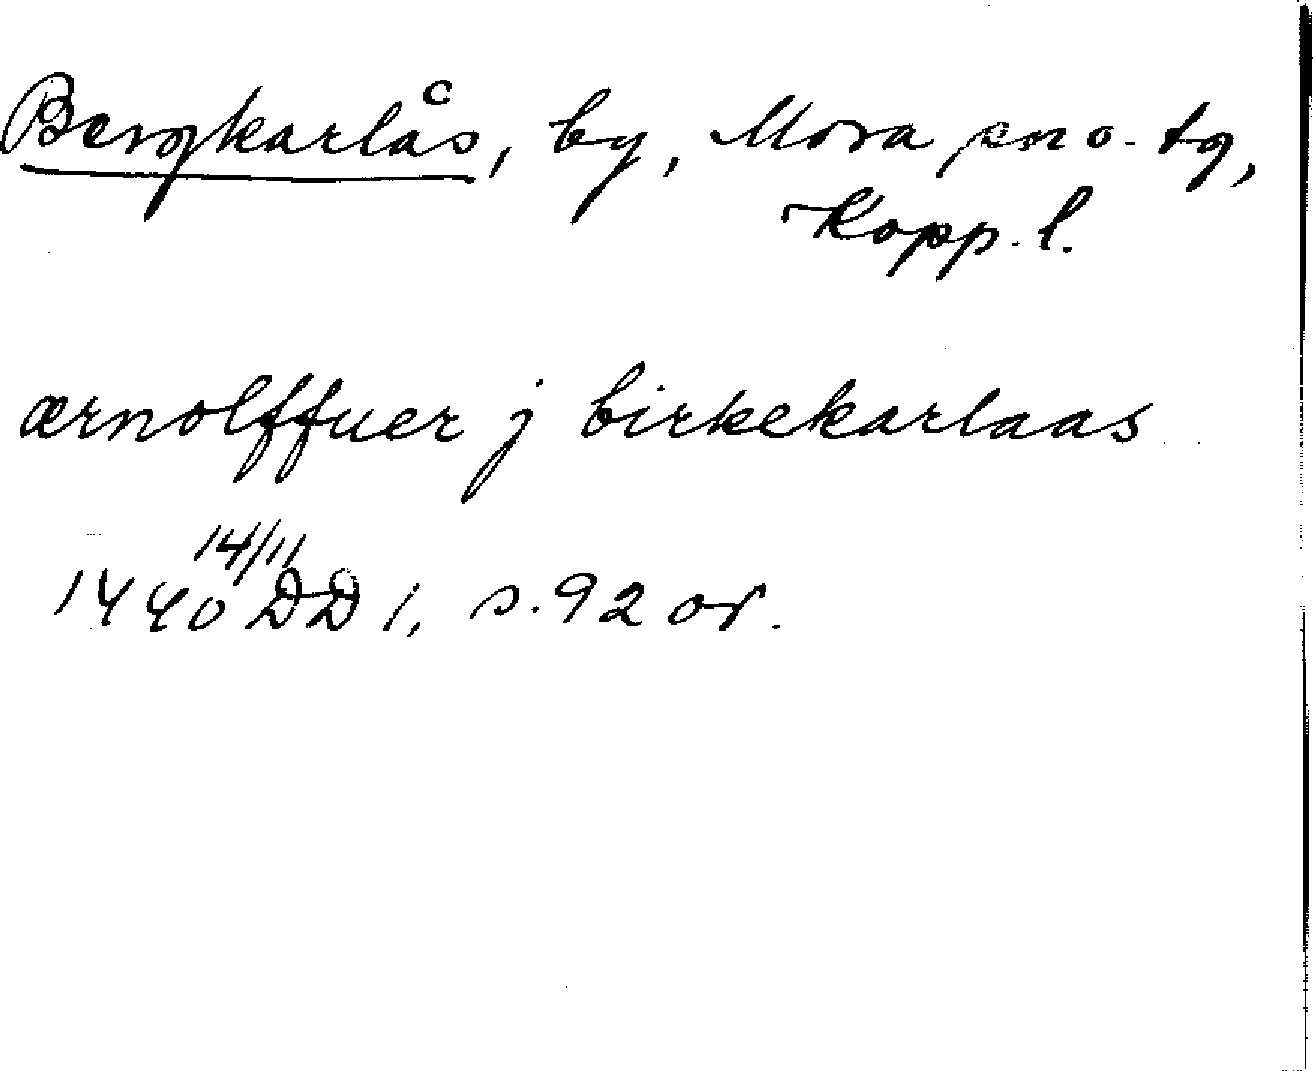 Bergkarlås, by, Mora sn o. tg,
Kopp. l.
ærnolffuer j birkekarlaas
1440 14/11 DD 1, s. 92 or.